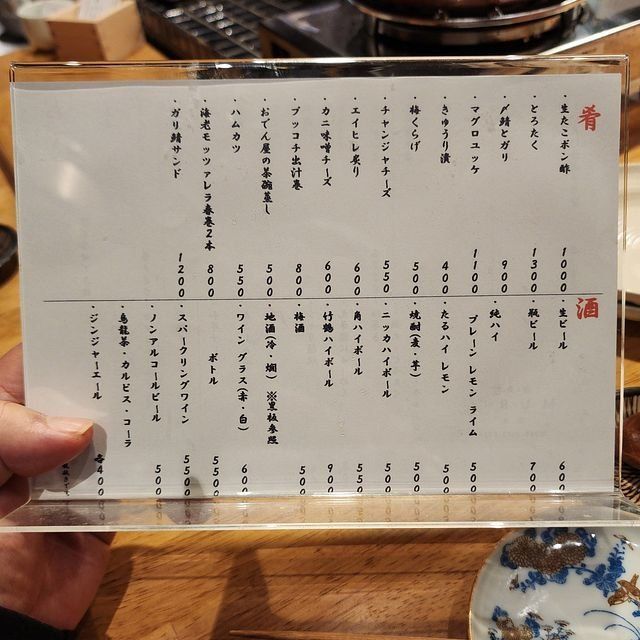 肴
・生たこポン酢 1000
・とろたく 1300
・〆鯖とガリ 900
・マグロユッケ 1100
・きゅうり漬 400
・梅くらげ 500
・チャンジャチーズ 550
・エイヒレ炙り 600
・カニ味噌チーズ 600
・ブッコチ出汁巻 800
・おでん屋の茶碗蒸し 500
・ハムカツ 550
・海老モッツァレラ春巻2本 800
・ガリ鯖サンド 1200
酒
・生ビール 600
・瓶ビール 700
・純ハイ
プレーン レモン ライム 500
・たるハイ レモン 500
・焼酎(麦・芋) 500
・ニッカハイボール 500
・角ハイボール 550
・竹鶴ハイボール 900
・梅酒 500
・地酒(冷・燗) ※黒板参照
・ワイン グラス(赤・白) 600
ボトル 5500
・スパークリングワイン 5500
・ノンアルコールビール 500
・烏龍茶・カルピス・コーラ
・ジンジャーエール 各400